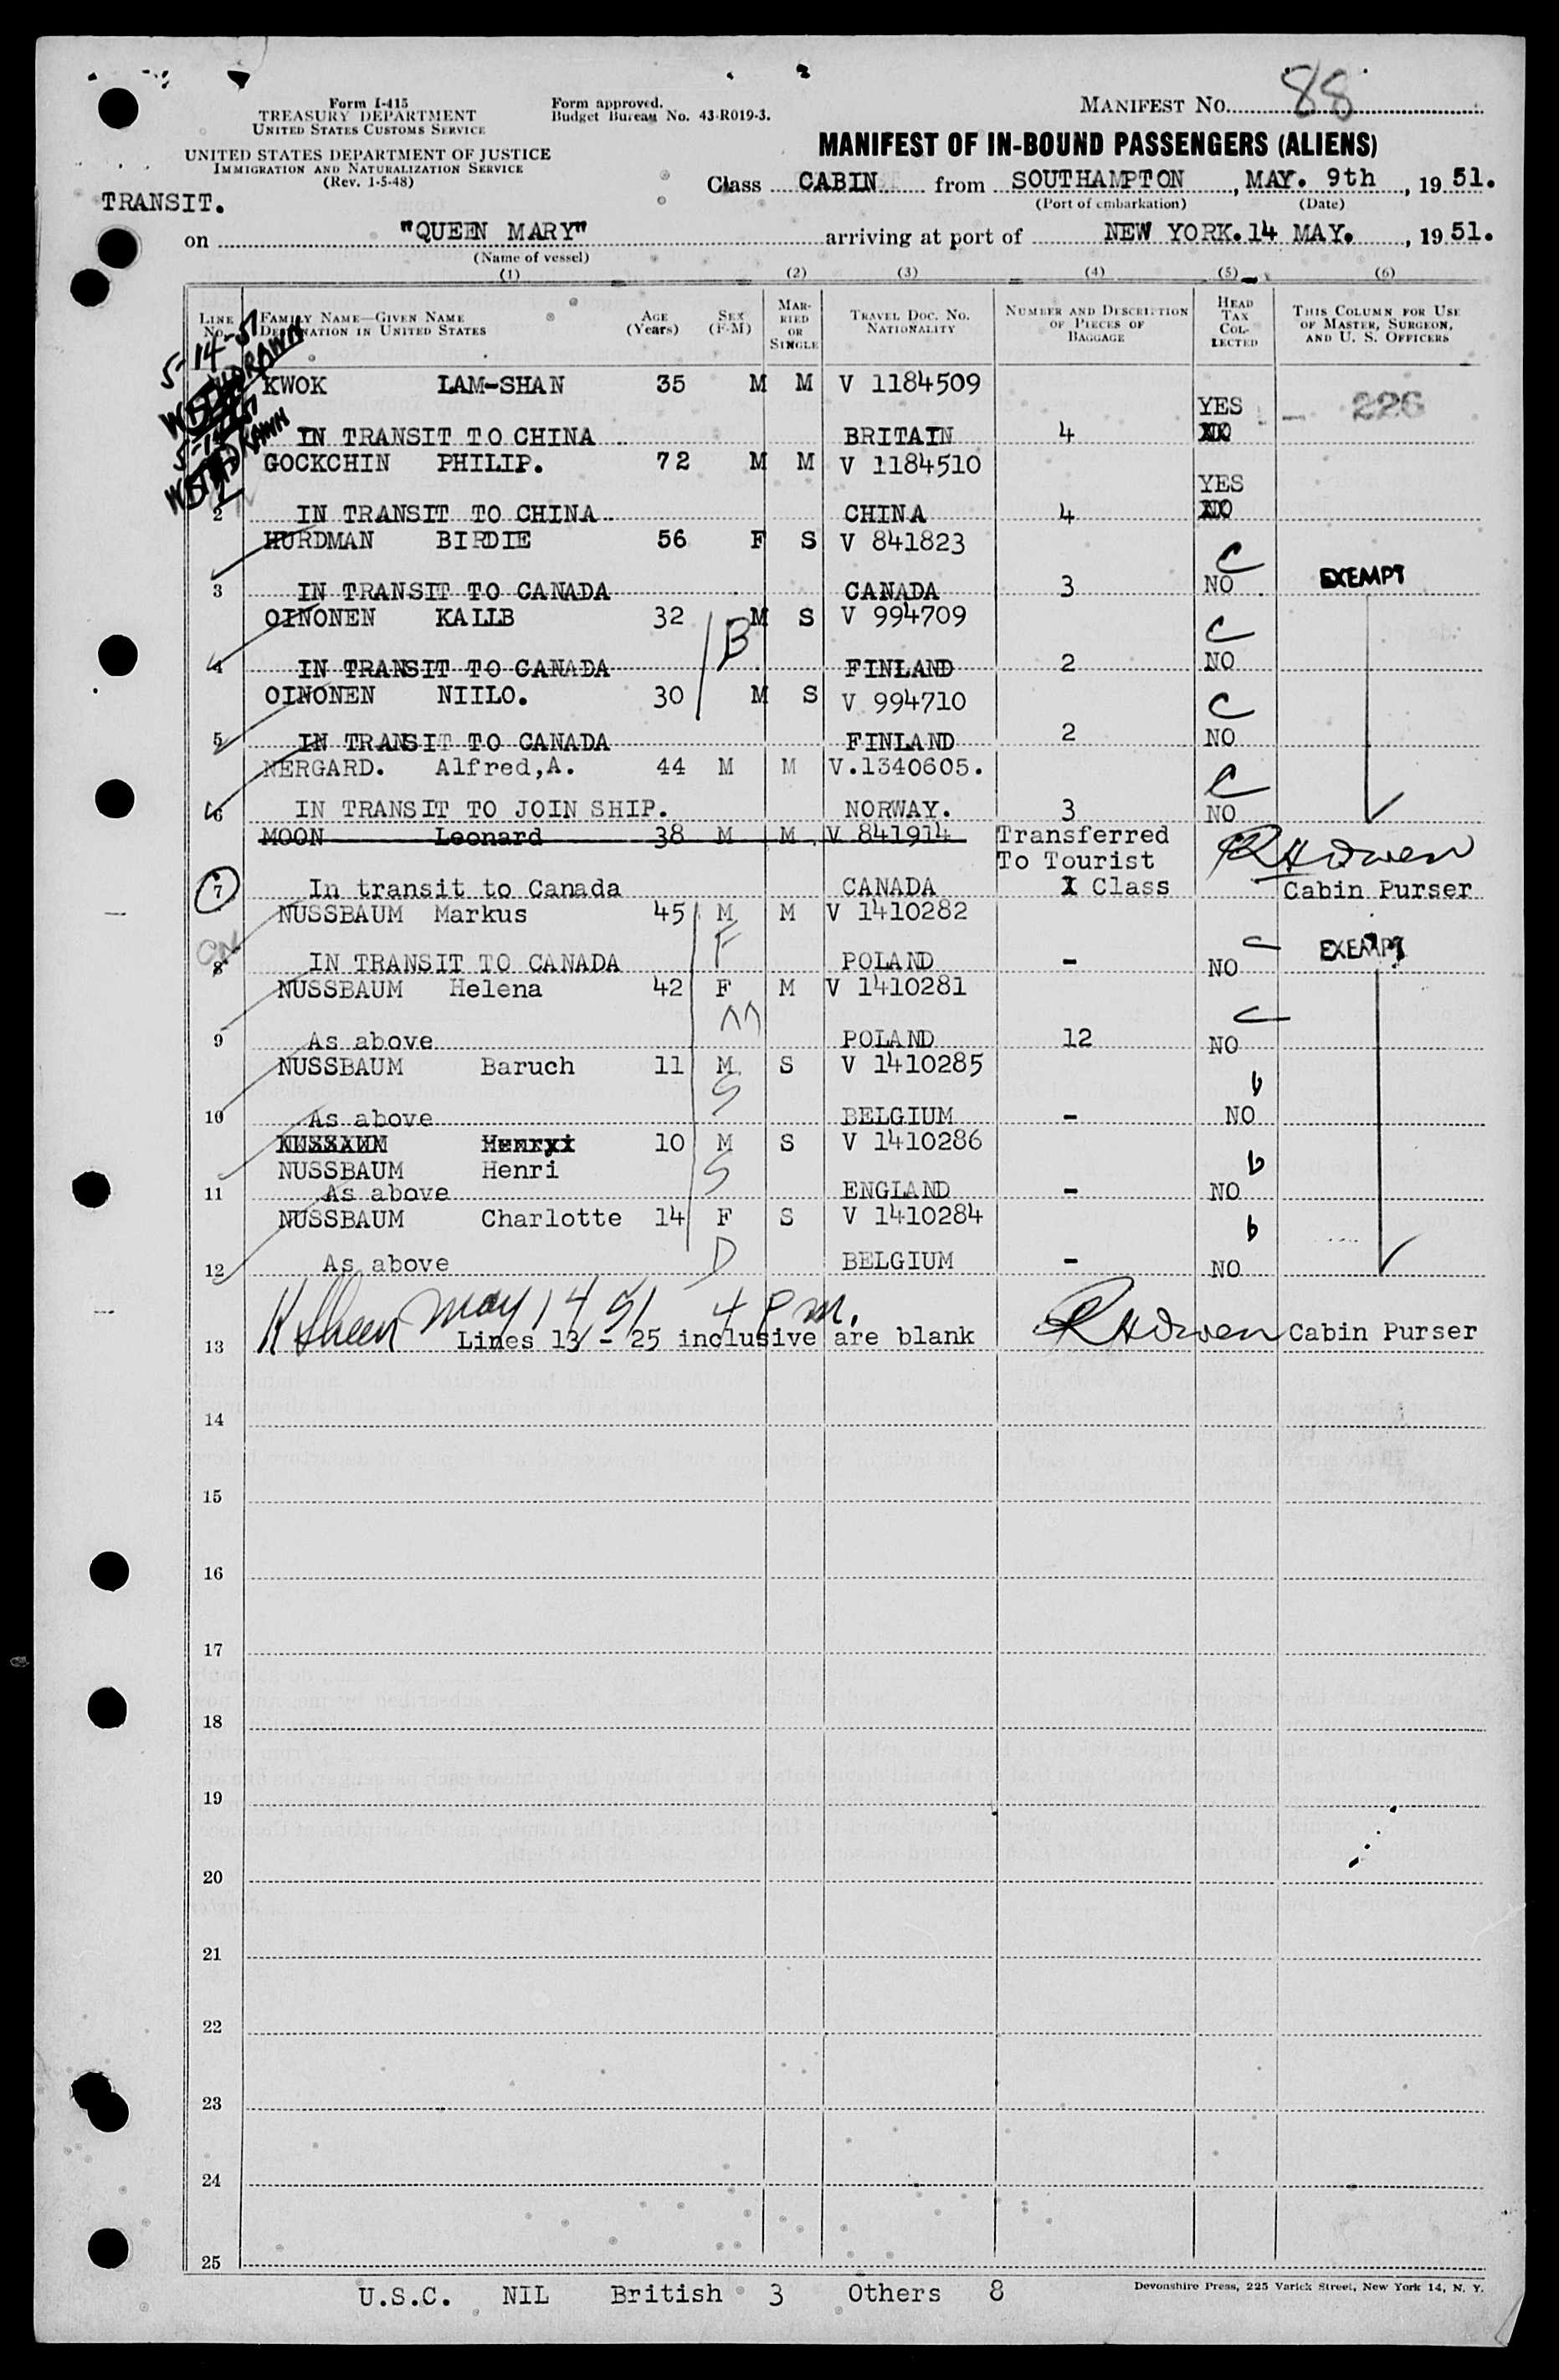 Form I-415
TREASURY DEPARTMENT
UNITED STATES CUSTOMS SERVICE
UNITED STATES DEPARTMENT OF JUSTICE
IMMIGRATION AND NATURALIZATION SERVICE
(Rev. 1-5-48)
Form approved.
Budget Bureau No. 43-R019-3.
MANIFEST NO. 88
MANIFEST OF IN-BOUND PASSENGERS (ALIENS)
Class CABIN from SOUTHAMPTON, MAY. 9th, 1951.
(Port of embarkation) (Date)
TRANSIT.
on "QUEEN MARY" arriving at port of NEW YORK. 14 MAY., 1951.
(Name of vessel)
(1) (2) (3) (4) (5) (6)
LINE No. FAMILY NAME—GIVEN NAME DESTINATION IN UNITED STATES AGE (Years) SEX (F-M) MARRIED OR SINGLE TRAVEL DOC. NO. NATIONALITY NUMBER AND DESCRIPTION OF PIECES OF BAGGAGE HEAD TAX COLLECTED THIS COLUMN FOR USE OF MASTER, SURGEON, AND U. S. OFFICERS
5-14-51 WITHDRAWN
KWOK LAM-SHAN 35 M M V 1184509
YES 226
IN TRANSIT TO CHINA BRITAIN 4 NO
WITHDRAWN
GOCKCHIN PHILIP. 72 M M V 1184510
YES
2 IN TRANSIT TO CHINA CHINA 4 NO
HURDMAN BIRDIE 56 F S V 841823 C
3 IN TRANSIT TO CANADA CANADA 3 NO EXEMPT
OINONEN KALLB 32 M S V 994709 C
B
4 IN TRANSIT TO CANADA FINLAND 2 NO
OINONEN NIILO. 30 M S V 994710 C
5 IN TRANSIT TO CANADA FINLAND 2 NO
NERGARD. Alfred,A. 44 M M V.1340605. C
6 IN TRANSIT TO JOIN SHIP. NORWAY. 3 NO
MOON Leonard 38 M M V 841914 Transferred
To Tourist RHOwen
7 In transit to Canada CANADA X Class Cabin Purser
NUSSBAUM Markus 45 M M V 1410282
F
8 IN TRANSIT TO CANADA POLAND - NO C EXEMPT
NUSSBAUM Helena 42 F M V 1410281
m C
9 As above POLAND 12 NO
NUSSBAUM Baruch 11 M S V 1410285
S b
10 As above BELGIUM - NO
NUSSAUM Henryi 10 M S V 1410286
NUSSBAUM Henri S b
11 As above ENGLAND - NO
NUSSBAUM Charlotte 14 F S V 1410284
b
12 As above D BELGIUM - NO
May 14 51 4 P.m.
13 Lines 13 - 25 inclusive are blank RHOwen Cabin Purser
14
15
16
17
18
19
20
21
22
23
24
25
U.S.C. NIL British 3 Others 8
Devonshire Press, 225 Varick Street, New York 14, N. Y.